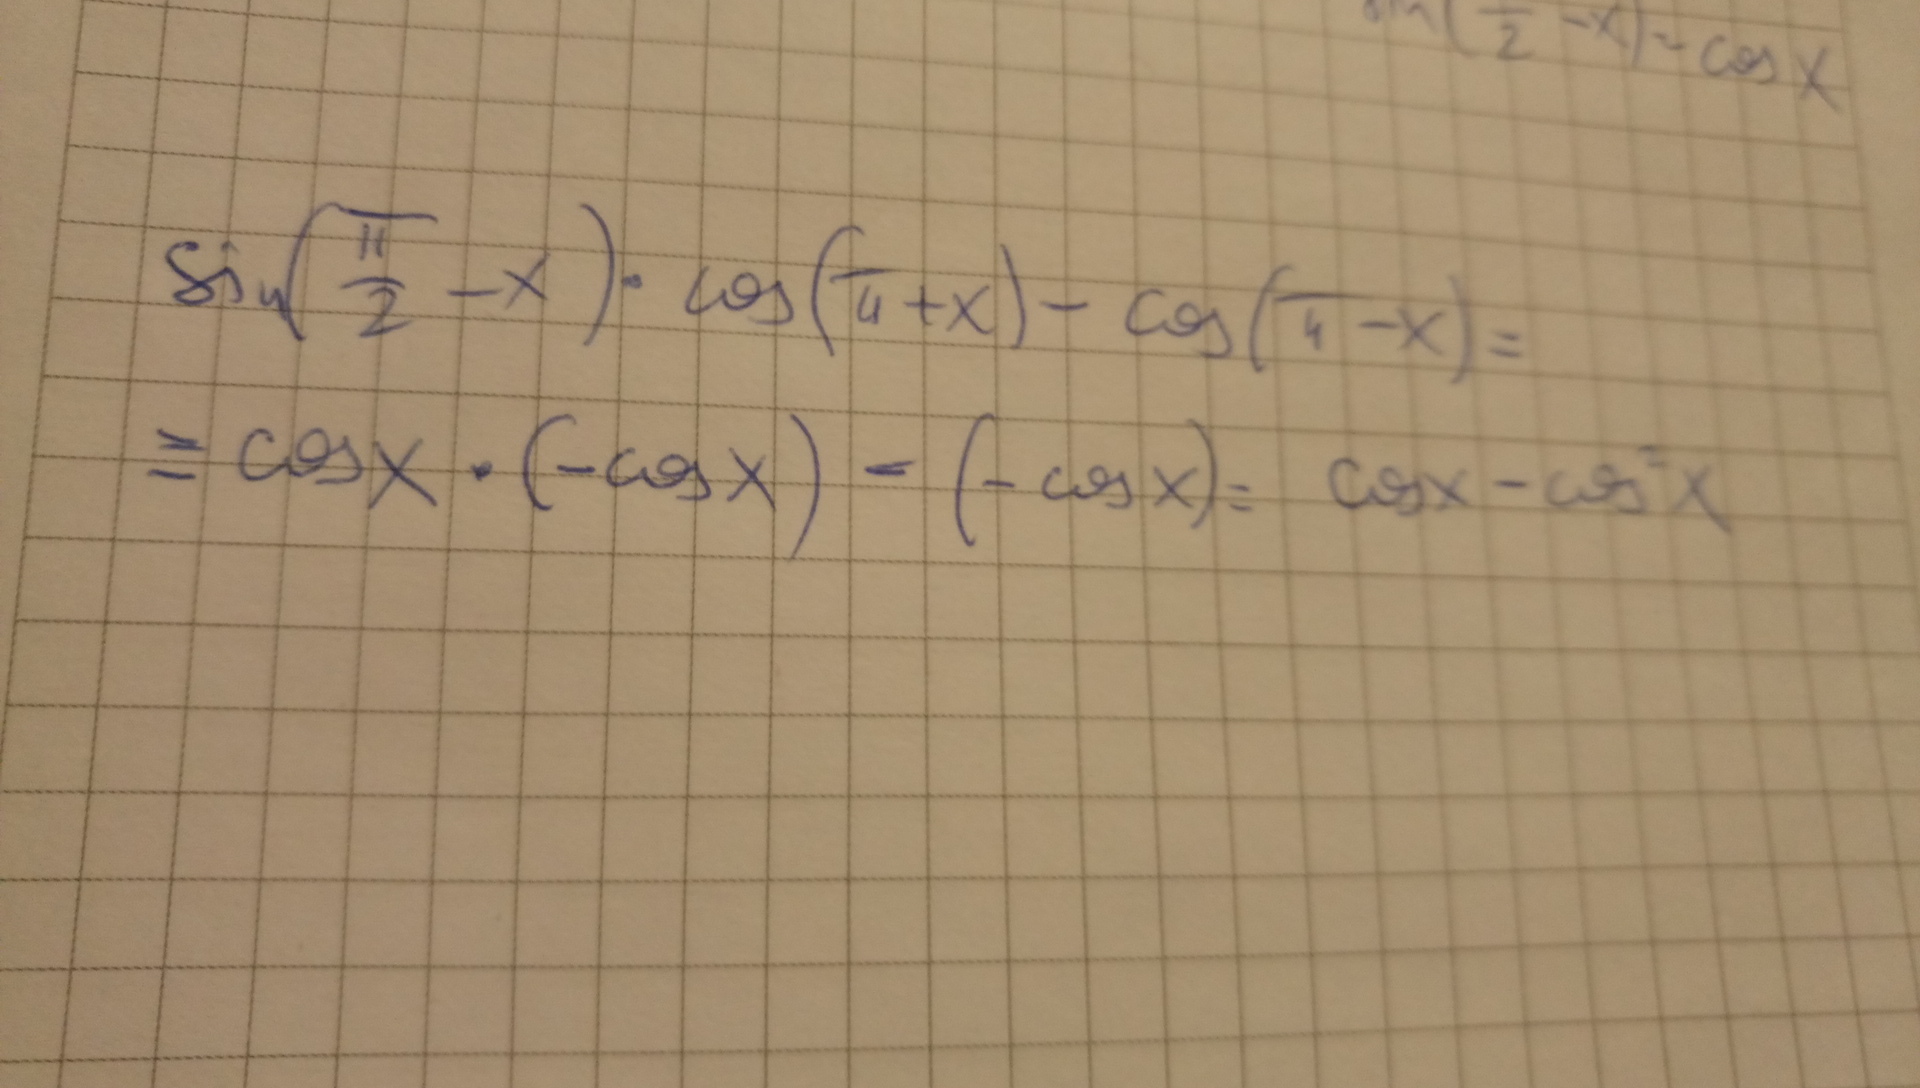 sin(π/2 -x) = cos x
sin(π/2 - x) · cos(π + x) - cos(π - x) =
= cos x · (-cos x) - (-cos x) = cos x - cos² x